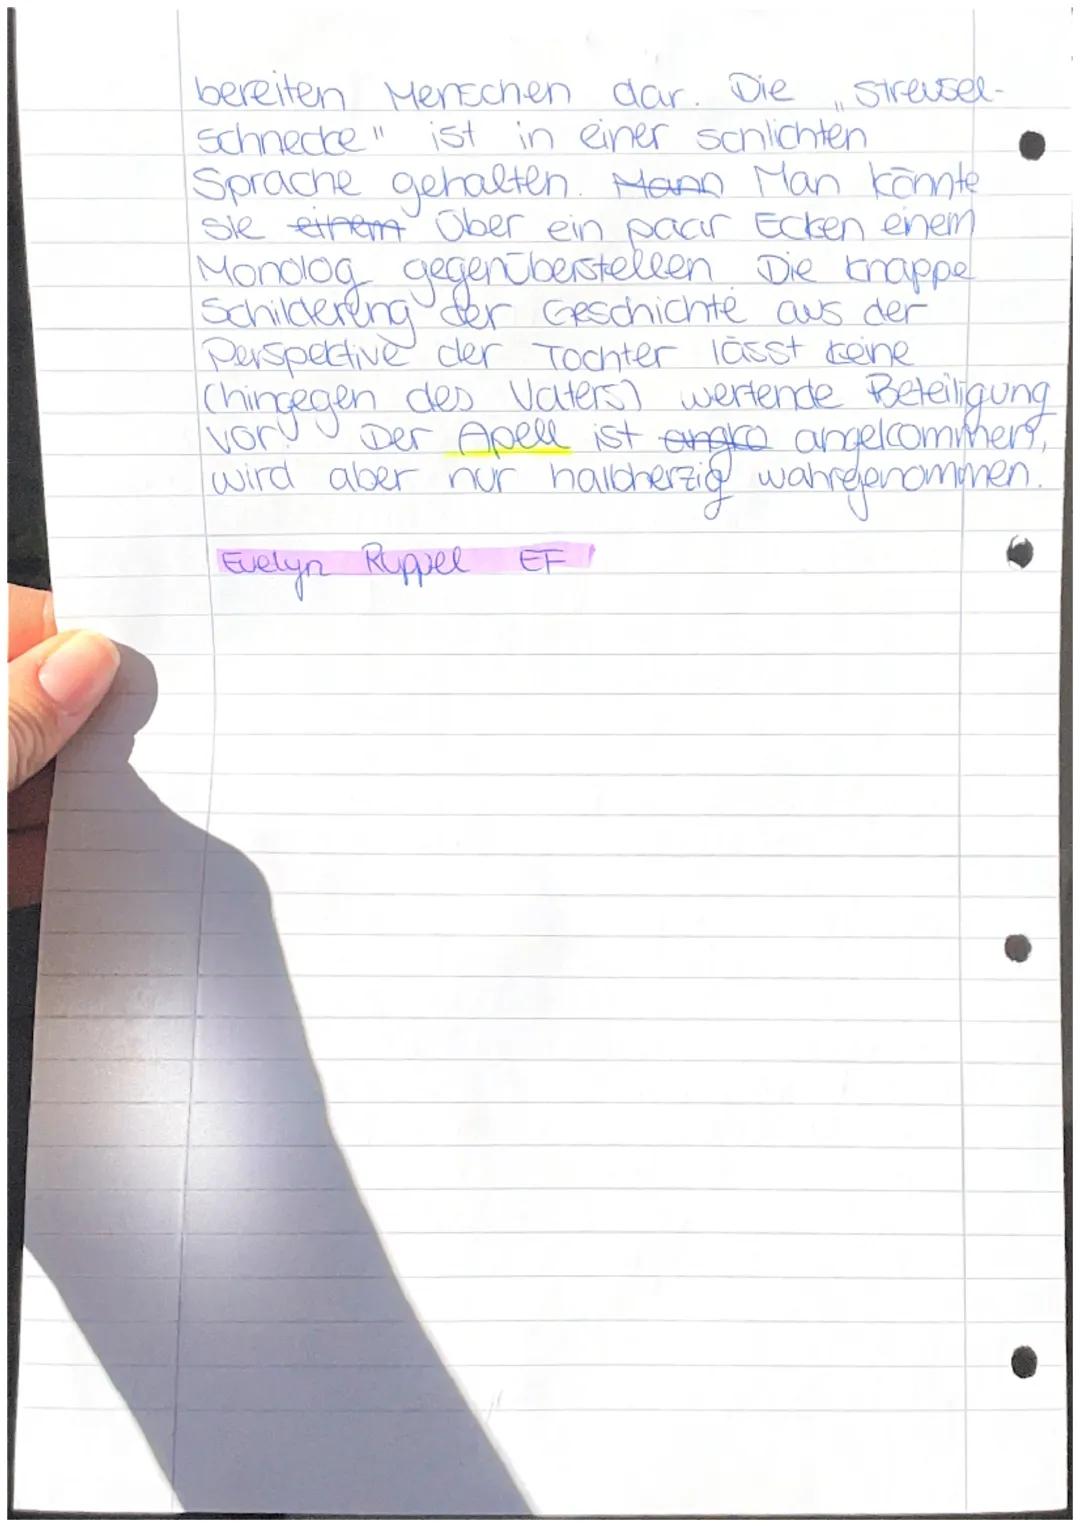 bereiten Menschen dar. Die „Streusel-
schnecke" ist in einer schlichten
Sprache gehalten. Mann Man könnte
sie einem über ein paar Ecken einem
Monolog gegenüberstellen. Die knappe
Schilderung der Geschichte aus der
Perspektive der Tochter lässt keine
(hingegen des Vaters) wertende Beteiligung
vor. Der Apell ist angko angekommen,
wird aber nur halbherzig wahrgenommen.
Evelyn Ruppel EF